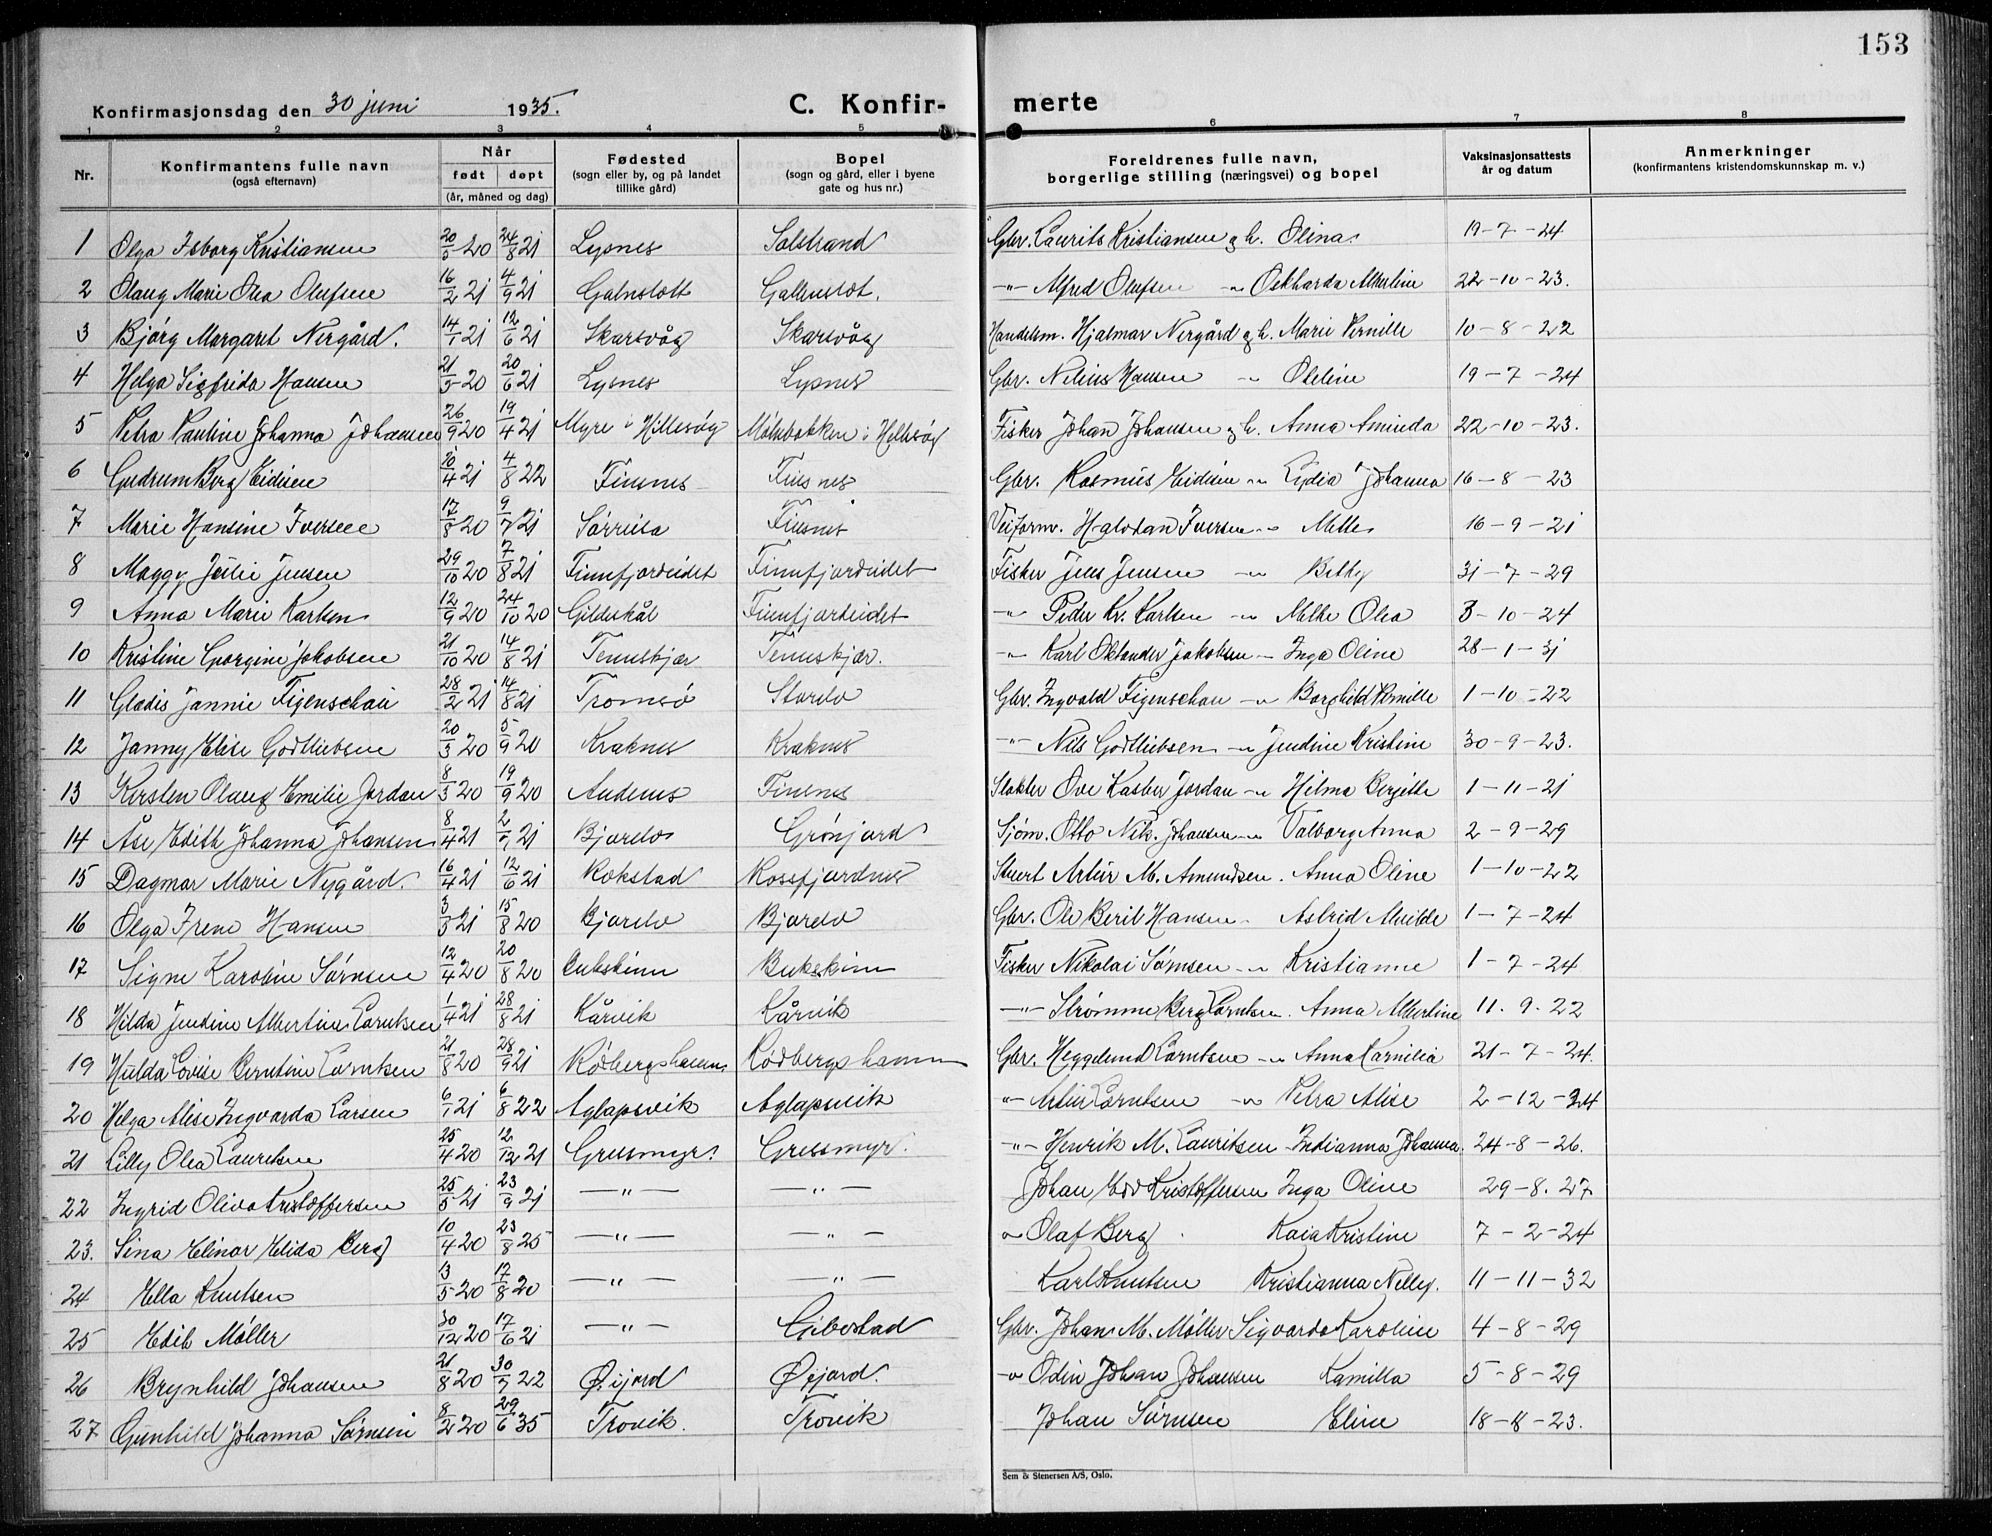 153
Konfirmasjonsdag den 30 juni 1935. C. Konfir- merte
1 2 3 4 5 6 7 8
Nr. Konfirmantens fulle navn (også efternavn) Når født døpt (år, måned og dag) Fødested (sogn eller by, og på landet tillike gård) Bopel (sogn og gård, eller i byene gate og hus nr.) Foreldrenes fulle navn, borgerlige stilling (næringsvei) og bopel Vaksinasjonsattests år og datum Anmerkninger (konfirmantens kristendomskunnskap m. v.)
1 Olga Isborg Kristiansen 20/5 20 24/8 21 Lysnes Solstrand Gbr. Laurits Kristiansen og h. Olina 19-7-24
2 Olaug Marie Olea Olufsen 16/2 21 4/9 21 Galnslott Gallnslot. -"- Alfred Olufsen -"- Oskharda Albertine 22-10-23.
3 Bjørg Margaret Nergård. 14/1 21 12/6 21 Skarsvåg Skarsvåg Handelsm. Hjalmar Nergård og h. Marie Pernille 10-8-22
4 Helga Sigfrida Hansen 21/5 20 20/6 21 Lysnes Lysnes Gbr. Nelius Hansen -"- Oteline 19-7-24
5 Petra Pauline Johanna Johansen 26/9 20 19/4 21 Myre i Hillesøy Målsbakken i Hillesøy Fisker Johan Johansen og h. Anna Aminda 22-10-23.
6 Gudrum Berg Eidisen 10/4 21 4/8 22 Finsnes Finsnes Gbr. Rasmus Eidisen -"- Lydia Johanna 16-8-23
7 Marie Hansine Iversen 17/8 20 9/7 21 Sørreisa Finsnes Veiform. Halvdan Iversen -"- Mette 16-9-21
8 Maggy Julie Jensen 29/10 20 7/8 21 Finnfjordeidet Finnfjordeidet Fisker Jens Jensen -"- Betty 31-7-29
9 Anna Marie Karlsen 12/9 20 24/10 20 Gildeskål Finnfjordeidet -"- Peder Kr. Karlsen -"- Methe Olea 3-10-24
10 Kristine Georgine Jakobsen 21/10 20 14/8 21 Tennskjær Tennskjær. -"- Karl Oktander Jakobsen -"- Inga Oline 28-1-31
11 Gladis Jannie Figenschau 28/2 21 14/8 21 Tromsø Gbr. Ingvald Figenschau -"- Borghild Pernille 1-10-22
12 Janny Elise Godtliebsen 20/3 20 5/9 20 Kraknes Kraknes -"- Nils Godtliebsen -"- Jendine Kristine 30-9-23.
13 Kirsten Olaug Emilie Jordan 8/3 20 19/9 20 Andenes Finsnes Slakter Ove Kasber Jordan -"- Hilma Birgitte 1-11-21
14 Åse Edith Johanna Johansen 8/4 21 2/7 21 Bjorelv Grønjord Sjøm. Otto Nik. Johansen -"- Valborg Anna 2-9-29
15 Dagmar Marie Nygård. 16/4 21 12/6 21 Rokstad Rossfjordnes Stuert Artur M. Amundsen. Anna Oline 1-10-22
16 Olga Irene Hansen 3/3 21 15/8 20 Bjorelv Bjorelv Gbr. Ole Beril Hansen - Astrid Alvilde 1-7-24
17 Signe Karoline Sørnsen 12/4 20 20/8 20 Bukskinn Bukskinn Fisker Nikolai Sørnsen -"- Kristianne 1-7-24
18 Hilda Jendine Albertine Lorntsen 1/4 21 28/8 21 Kårvik Kårvik -"- Strømme Berg Lorntsen. Anna Albertine 11.9.22
19 Hulda Lovise Berntine Lorntsen 21/8 20 28/9 21 Rødbergshamn Rødbergshamn Gbr. Heggelund Lorntsen -"- Anna Kornilia 21-7-24.
20 Helga Alise Ingvarda Larsen 6/1 21 6/8 22 Aglapsvik Aglapsvik -"- Artur Lorntsen -"- Petra Alise 2-12-24
21 Lilly Olea Lauritsen 25/4 20 12/12 21 Gressmyr. Gressmyr. -"- Henrik M. Lauritsen Indianna Johanna. 24-8-26.
22 Ingrid Oliva Kristoffersen 25/5 21 23/9 21 -"- -"- Johan Edv Kristoffersen Inga Oline 29-8.27
23. Sina Elinor Elida Berg 10/4 20 23/8 25 -"- -"- -"- Olaf Berg Kaia Kristine 7-2-24
24 Ella Knutsen 3/5 20 17/8 20 -"- -"- Karl Knutsen Kristianna Nelly. 11-11-32
25 Edit Møller 30/12 20 17/6 21 -"- Gibostad Gbr. Johan M. Møller Sigvarda Karoline 4-8-29
26 Brynhild Johansen 21/8 20 30/7 22 Øijord Øijord. -"- Odin Johan Johansen Kamilla 5-8-29
27 Gunhild Johanna Sørnsen 8/2 20 29/6 35 Trovik. Trovik Johan Sørnsen Eline 18-8-23.
Sem & Stenersen A/S, Oslo.